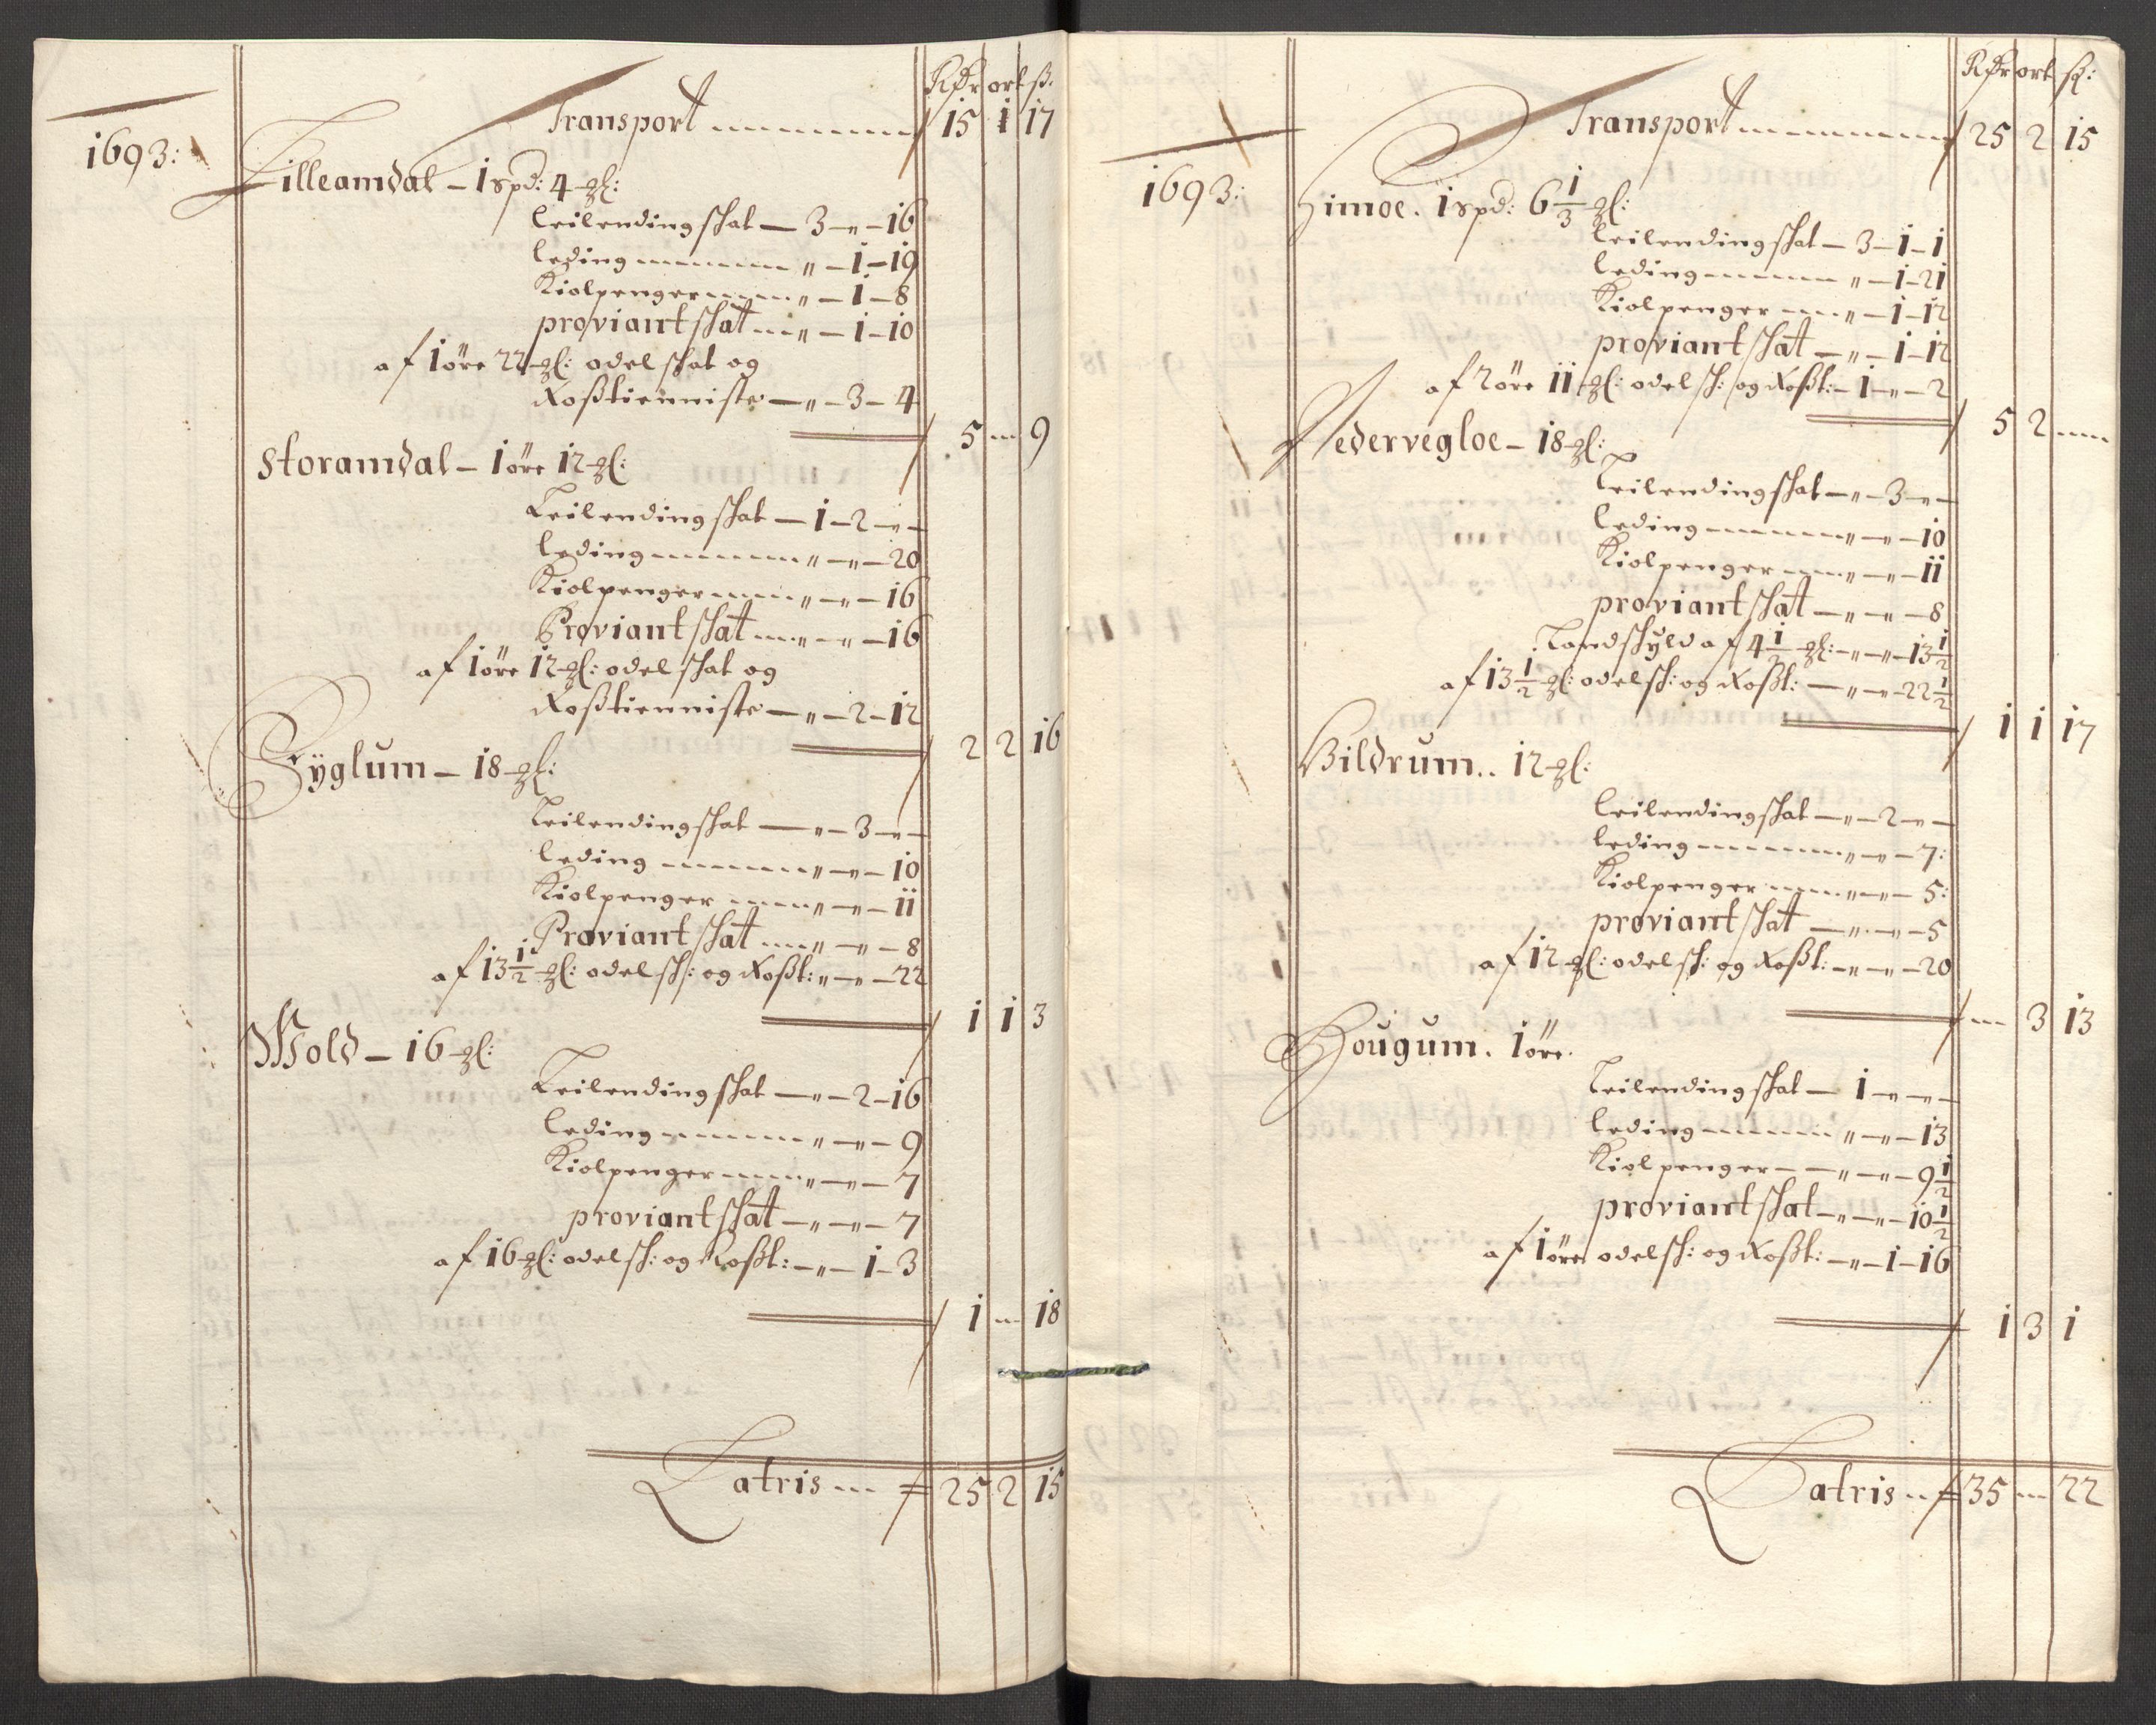 Rdr ort ß.
Transport 15 1 17
1693:
Lilleamdal – 1 spd: 4 gl:
Leilendingschat — 3 – „ – 16
leding „ – 1 – 19
Kiolpenger „ – 1 – 8
proviant schat „ – 1 – 10
af 1 öre 22 gl: odelschat og
Roßtienniste — „ – 3 – 4
5 „ 9
Storamdal – 1 öre 12 gl:
Leilendingschat — 1 – 2 – „ –
leding „ – „ – 20
Kiolpenger „ – „ – 16
Proviant schat „ – „ – 16
af 1 öre 12 gl: odelschat og
Roßtienniste — „ – 2 – 12
2 2 16
Syglum – 18 gl:
Leilendingschat — „ – 3 – „ –
leding „ – „ – 10
Kiolpenger „ – „ – 11
Proviant schat „ – „ – 8
af 13½ gl: odelsch: og Roßt: „ – „ – 22
1 1 3
Wold – 16 gl:
Leilendingschat — „ – 2 – 16
leding „ – „ – 9
Kiolpenger „ – „ – 7
proviant schat – „ – „ – 7
af 16 gl: odelsch: og Roßt: – „ – 1 – 3
1 „ 18
Latris 25 2 15
Rdr ort sk:
Transport 25 2 15
1693:
Simoe. 1 spd: 6⅓ gl:
Leilendingschat – 3 – 1 – 1
leding „ – 1 – 21
Kiolpenger „ – 1 – 12
proviant schat – „ – 1 – 12
af 2 öre 11 gl: odelsch: og Roßt: – 1 – „ – 2
5 2 „
Nedervegloe – 18 gl:
Leilendingschat – „ – 3 – „ –
leding „ – „ – 10
Kiolpenger „ – „ – 11
proviant schat – „ – „ – 8
Landskyld af 4½ gl: – „ – „ – 13½
af 13½ gl: odelsch: og Roßt: – „ – „ – 22½
1 1 17
Bildrum.. 12 gl:
Leilendingschat – „ – 2 – „ –
leding „ – „ – 7:
Kiolpenger „ – „ – 5:
proviant schat – „ – „ – 5
af 12 gl: odelsch: og Roßt: – „ – „ – 20
„ 3 13
Hougum. 1 öre.
Leilendingschat – 1 – „ – „ –
leding „ – „ – 13
Kiolpenger – – „ – „ – 9½
proviant schat – „ – „ – 10½
af 1 öre odelsch: og Roßt: – „ – 1 – 16
1 3 1
Latris 35 „ 22